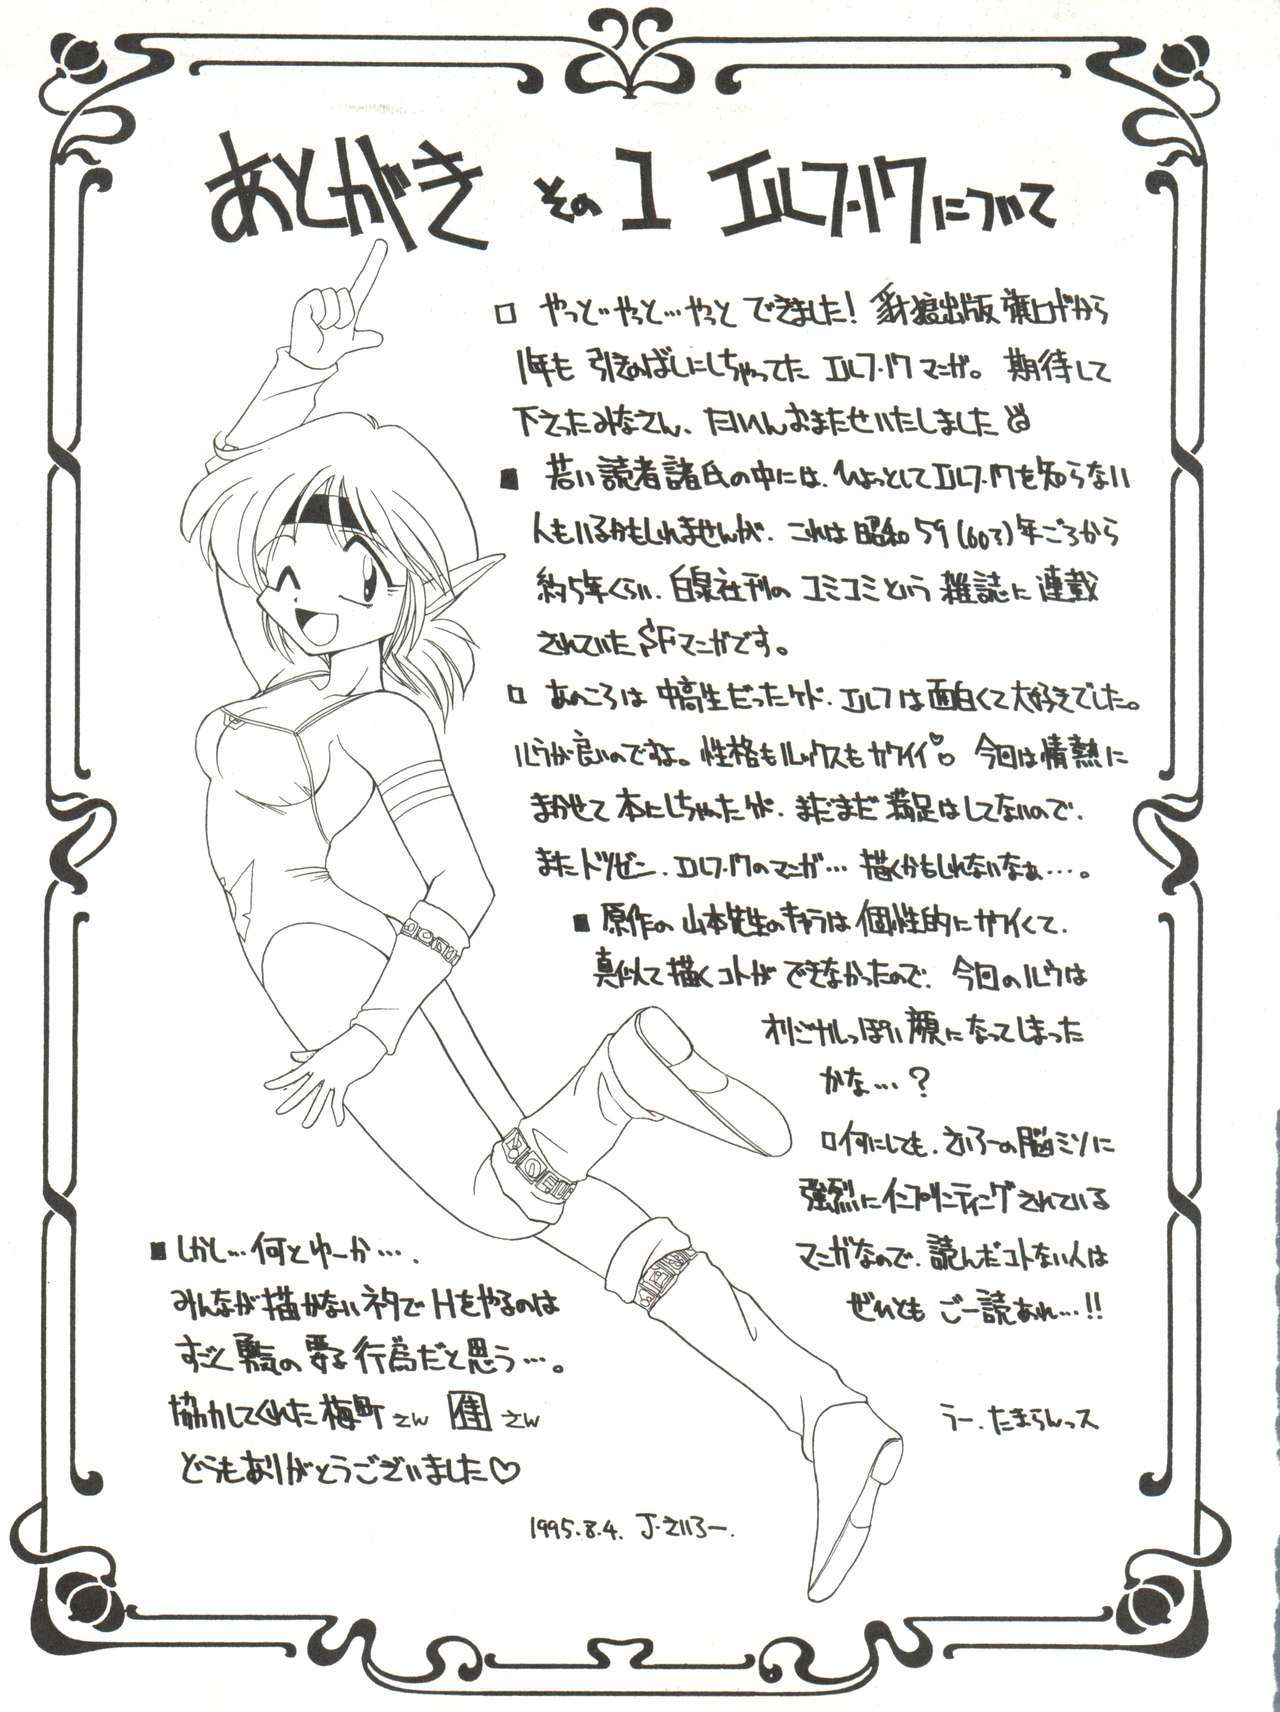 あとがき その1 エルフ・17について
□ やっと…やっと…やっと できました! 豺狼出版 旗上げから
1年も 引きのばしにしちゃってた エルフ・17マンガ。 期待して
下さったみなさん、たいへんおまたせいたしました
■ 若い読者諸氏の中には、ひょっとしてエルフ・17を知らない
人もいるかもしれませんが、これは昭和59(60?)年ごろから
約5年くらい、白泉社刊の コミコミという 雑誌に 連載
されていたSFマンガです。
□ あのころは 中高生だったケド、エルフは面白くて大好きでした。
ルウが良いのですよ。性格もルックスもカワイイ♡ 今回は情熱に
まかせて 本にしちゃったケド、まだまだ 満足はしてないので、
またトツゼン、エルフ・17のマンガ… 描くかもしれないなぁ…。
■ 原作の 山本先生のキャラは 個性的にカワイくて、
真似て描くコトが できなかったので、今回のルウは
オリジナルっぽい顔になってしまった
かな…?
□何にしても、さいろーの脳ミソに
強烈にインプリンティングされている
マンガなので、読んだコトない人は
ぜひとも ご一読あれ…!!
うー、たまらんっス
■ しかし…何とゆーか…、
みんなが描かないネタでHをやるのは
すごく 勇気の要る行為だと思う…。
協力してくれた 梅町さん 佳さん
どうもありがとうございました♡
1995.8.4. J・さいろー.